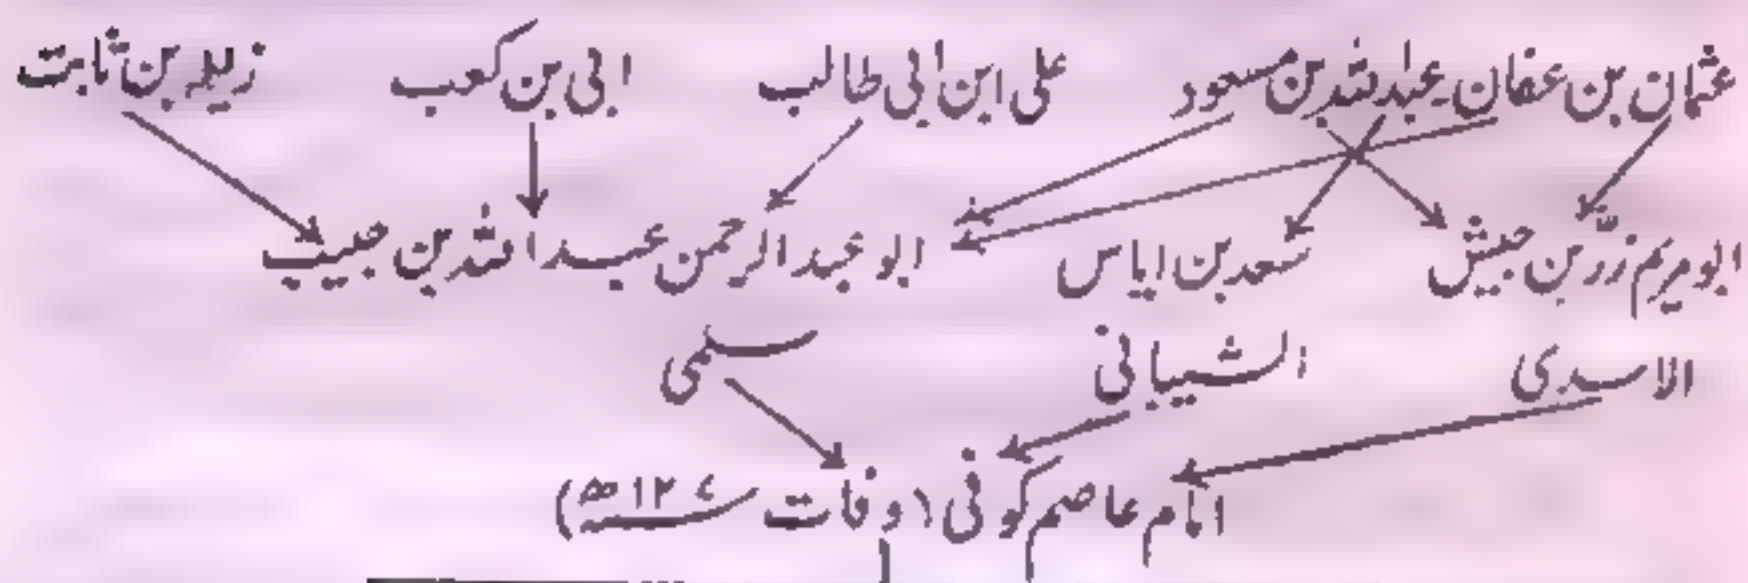 عثمان بن عفان عبداللہ بن مسعود علی ابن ابی طالب ابی بن کعب زید بن ثابت
ابو مریم زرّ بن حبیش سعد بن ایاس ابو عبد الرحمن عبد اللہ بن حبیب
الاسدی الشیبانی سلمی
امام عاصم کوفی (وفات ۱۲۷ھ)